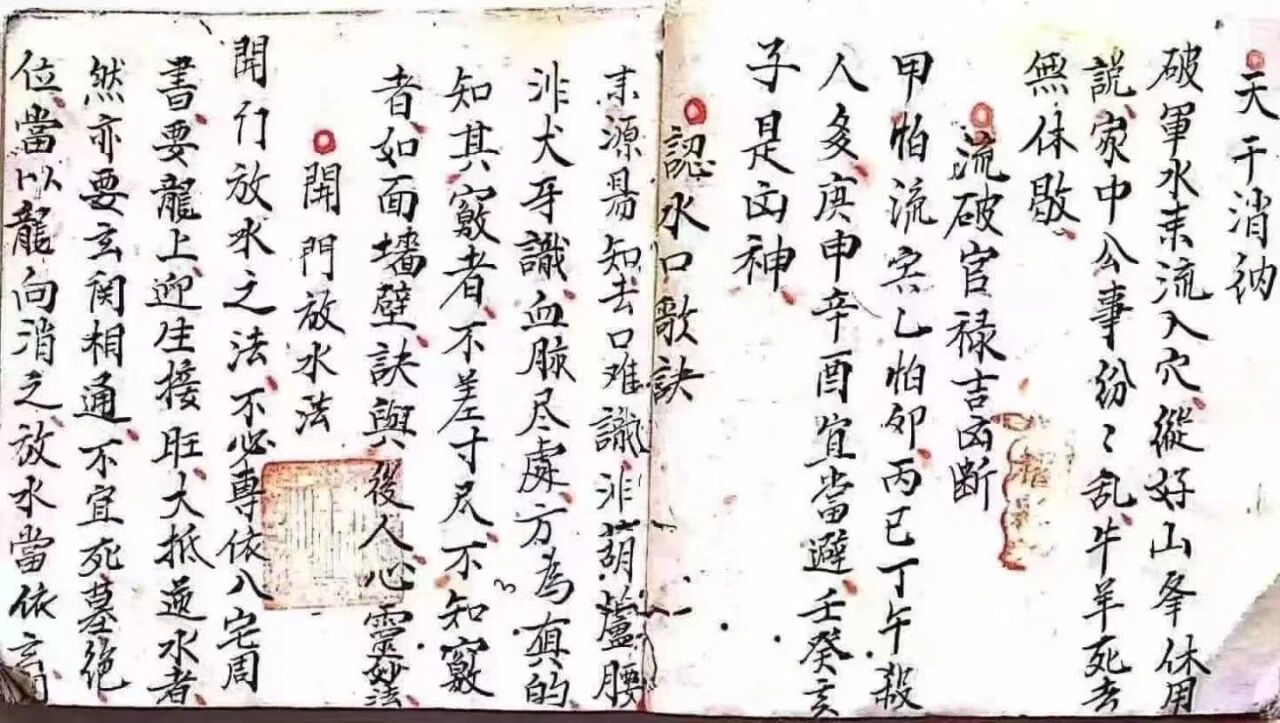 天干消納
破軍水来流入穴縱好山峯休用
說家中公事紛〻乱牛羊死去
無休歇
流破官禄吉凶断
甲怕流寅乙怕卯丙巳丁午殺
人多庚申辛酉宜當避壬癸亥
子是凶神
認水口歌訣
来源易知去口难識非葫蘆腰
非犬牙識血脉尽處方為真的
知其竅者不差寸尺不知竅
者如面墻壁訣與後人心靈妙法
開門放水法
開门放水之法不必専依八宅周
書要龍上迎生接旺大抵逆水者
然亦要玄関相通不宜死墓绝
位當以龍向消之放水當依玄関